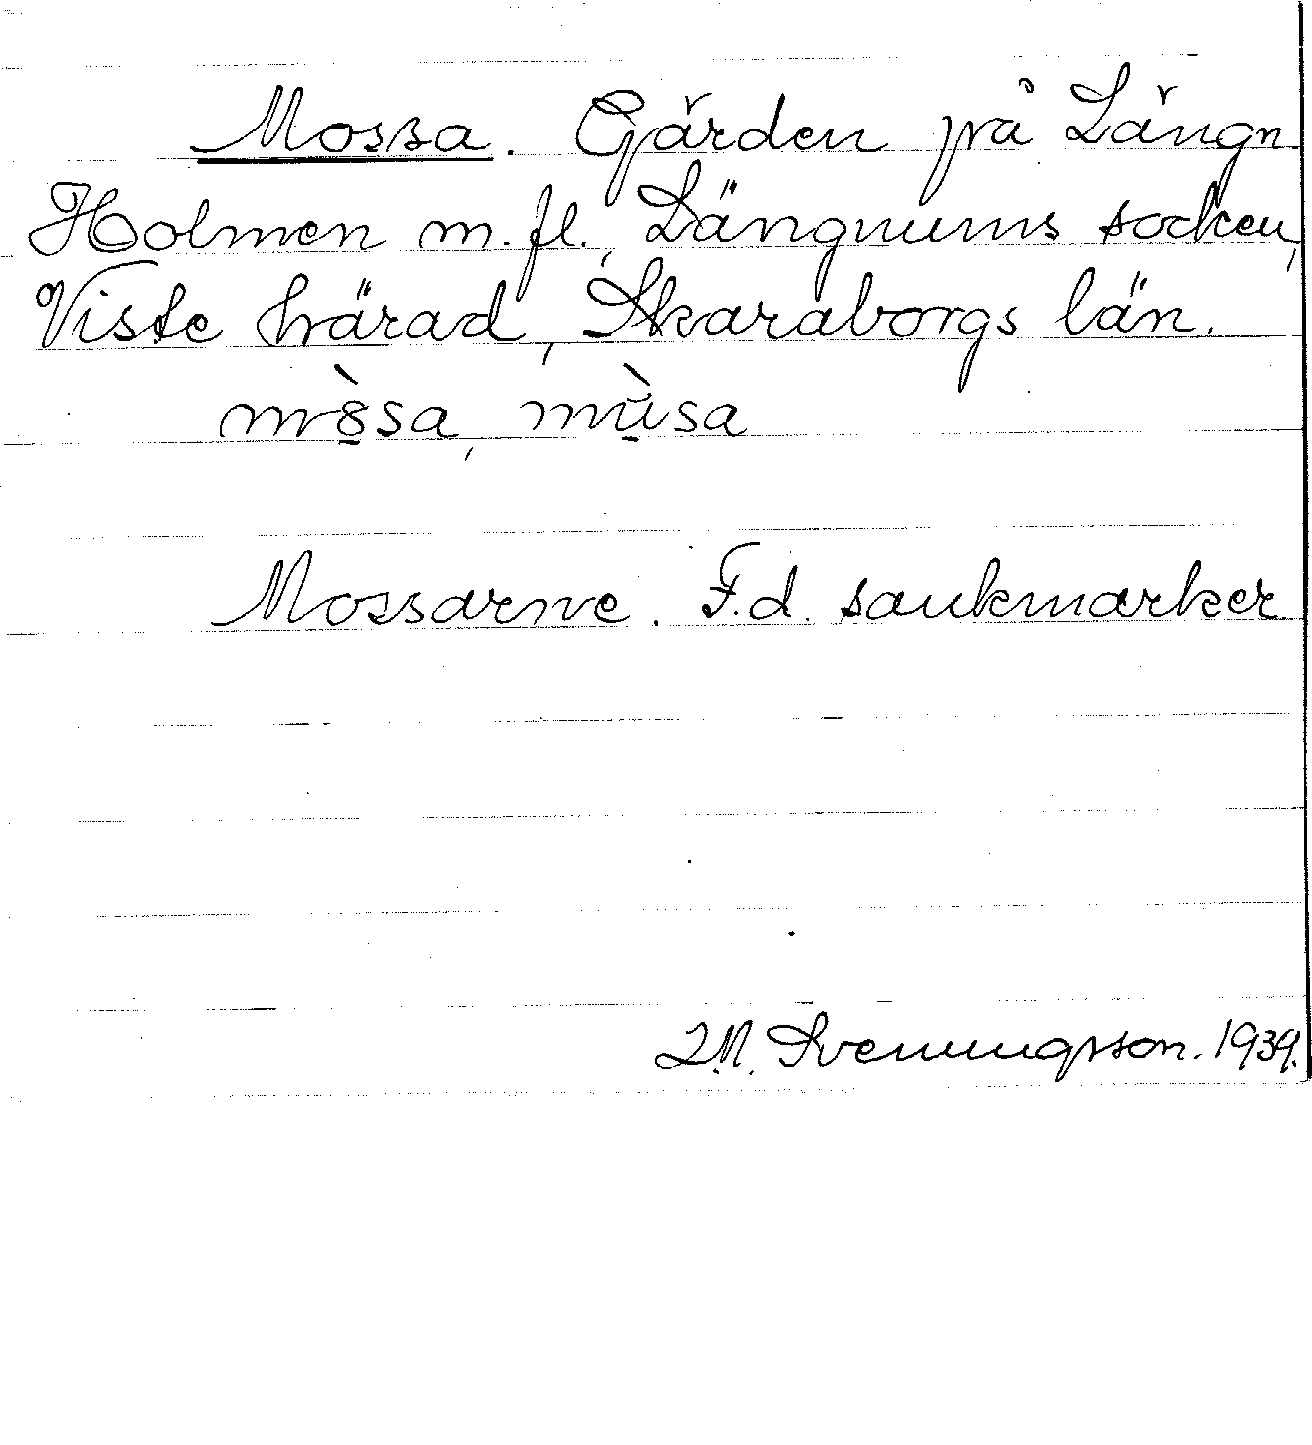 Mossa. Gärden på Längn
Holmen m. fl., Längnums socken,
Viste härad, Skaraborgs län.
mò̠sa, mù̠sa
Mossarne. F.d. sankmarker
I.M. Svenungsson. 1939.